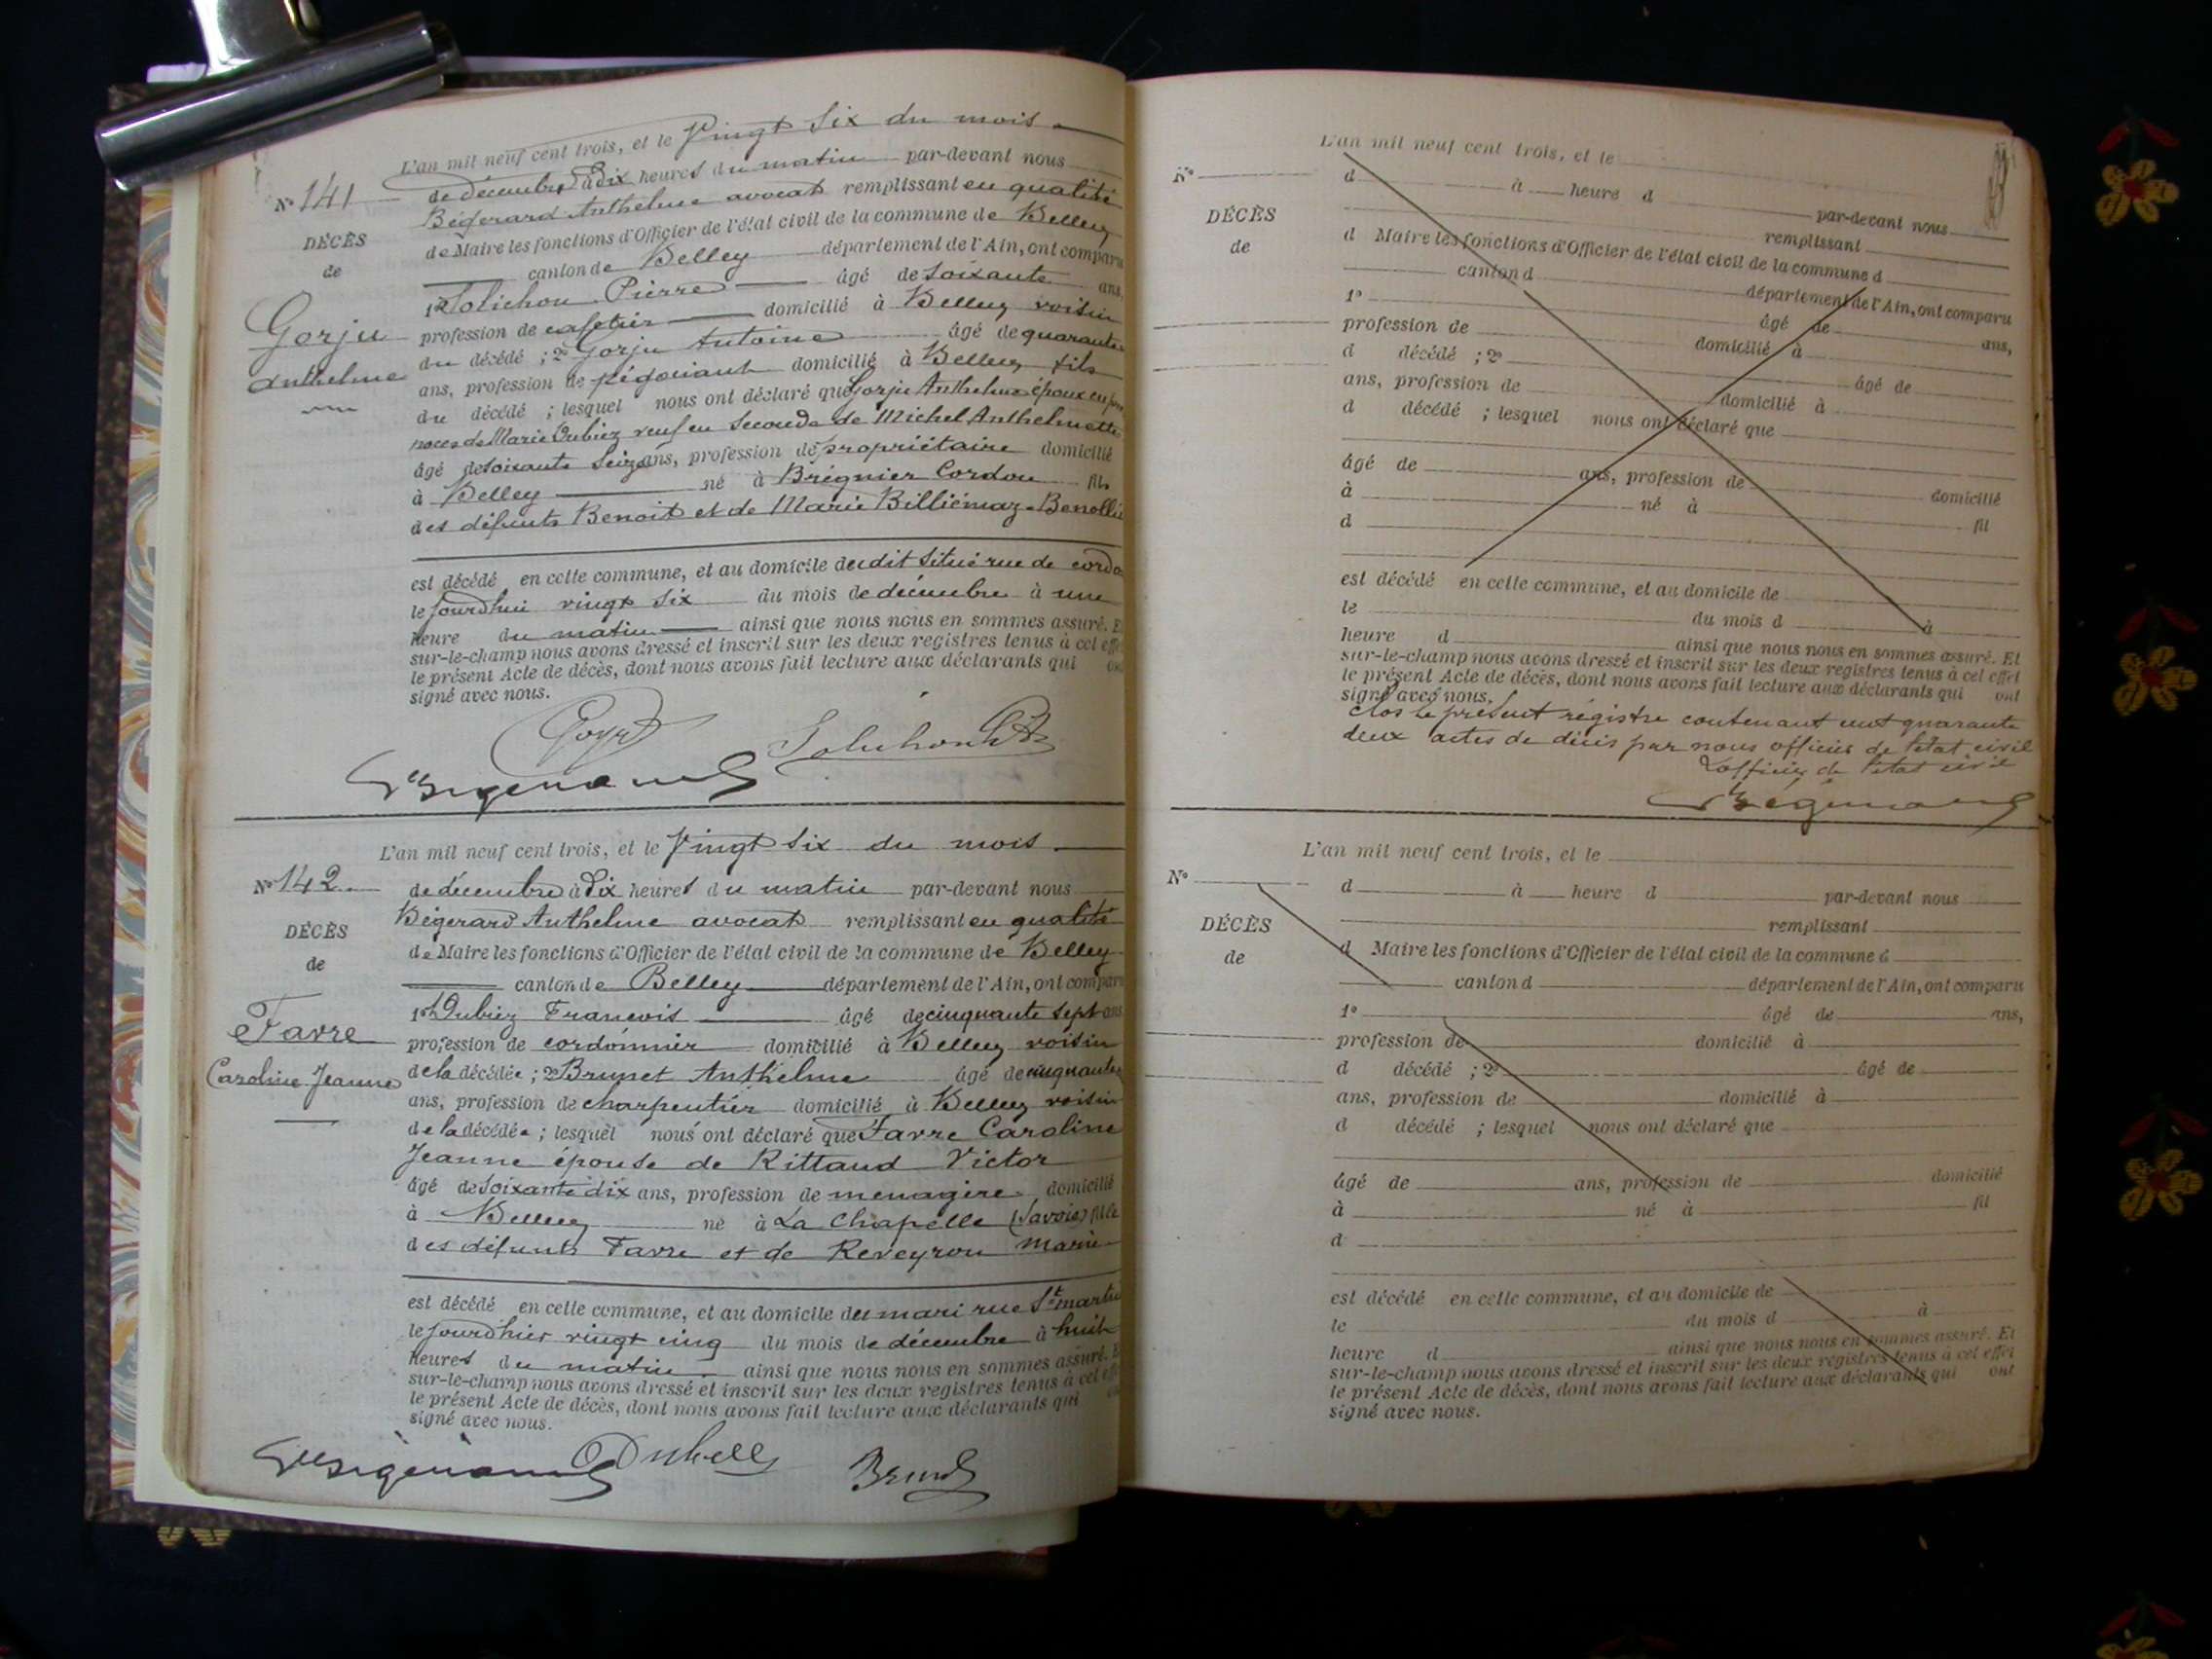 L'an mil neuf cent trois, et le Vingt Six du mois
N° 141
de décembre à Dix heures du matin par-devant nous
Bégerard Anthelme avocat remplissant en qualité
DÉCÈS
de Maire les fonctions d'Officier de l'état civil de la commune de Belley
de
canton de Belley département de l'Ain, ont comparu
1° Solichon Pierre âgé de soixante ans,
Gorju
profession de cafetier domicilié à Belley voisin
du décédé ; 2° Gorju Antoine âgé de quarante
Anthelme
ans, profession de négociant domicilié à Belley fils
du décédé ; lesquel nous ont déclaré que Gorju Anthelme époux en
noces de Marie Dubiez veuf en Seconde de Michel Anthelmette
âgé de soixante Seize ans, profession de propriétaire domicilié
à Belley né à Brégnier Cordon fils
des défunts Benoit et de Marie Billiémaz-Benollie
est décédé en cette commune, et au domicile du dit Situé rue de
le jourdhui vingt Six du mois de décembre à une
heure du matin ainsi que nous nous en sommes assuré. E
sur-le-champ nous avons dressé et inscrit sur les deux registres tenus à cet effe
le présent Acte de décès, dont nous avons fait lecture aux déclarants qui
signé avec nous.
Solichon
L'an mil neuf cent trois, et le Vingt Six du mois
N° 142
de décembre à Dix heures du matin par-devant nous
Bégerard Anthelme avocat remplissant en qualité
DÉCÈS
de Maire les fonctions d'Officier de l'état civil de la commune de Belley
de
canton de Belley département de l'Ain, ont comparu
1° Dubiez Francois âgé de cinquante sept ans
Favre
profession de cordonnier domicilié à Belley voisin
Caroline Jeanne
de la décédée ; 2° Brunet Anthelme âgé de cinquante
ans, profession de charpentier domicilié à Belley voisin
de la décédée ; lesquel nous ont déclaré que Favre Caroline
Jeanne épouse de Rittaud Victor
âgé de soixante dix ans, profession de menagère domicilié
à Belley né à La Chapelle (Savoie) fille
des défunts Favre et de Reveyron Marie
est décédé en cette commune, et au domicile du mari rue St martin
le jourdhier vingt cinq du mois de décembre à huit
heures du matin ainsi que nous nous en sommes assuré. E
sur-le-champ nous avons dressé et inscrit sur les deux registres tenus à cet eff
le présent Acte de décès, dont nous avons fait lecture aux déclarants qui
signé avec nous.
L'an mil neuf cent trois, et le
N°
d à heure d par-devant nous
remplissant
DÉCÈS
d Maire les fonctions d'Officier de l'état civil de la commune d
de
canton d département de l'Ain, ont comparu
1° âgé de ans,
profession de domicilié à
d décédé ; 2° âgé de
ans, profession de domicilié à
d décédé ; lesquel nous ont déclaré que
âgé de ans, profession de domicilié
à né à fil
d
est décédé en cette commune, et au domicile de
le du mois d à
heure d ainsi que nous nous en sommes assuré. Et
sur-le-champ nous avons dressé et inscrit sur les deux registres tenus à cet effet
le présent Acte de décès, dont nous avons fait lecture aux déclarants qui ont
signé avec nous.
Clos le présent régistre contenant cent quarante
deux actes de décès par nous officier de l'état civil
L'officier de l'état civil
L'an mil neuf cent trois, et le
N°
d à heure d par-devant nous
remplissant
DÉCÈS
d Maire les fonctions d'Officier de l'état civil de la commune d
de
canton d département de l'Ain, ont comparu
1° âgé de ans,
profession de domicilié à
d décédé ; 2° âgé de
ans, profession de domicilié à
d décédé ; lesquel nous ont déclaré que
âgé de ans, profession de domicilié
à né à fil
d
est décédé en cette commune, et au domicile de
le du mois d à
heure d ainsi que nous nous en sommes assuré. Et
sur-le-champ nous avons dressé et inscrit sur les deux registres tenus à cet effet
le présent Acte de décès, dont nous avons fait lecture aux déclarants qui ont
signé avec nous.